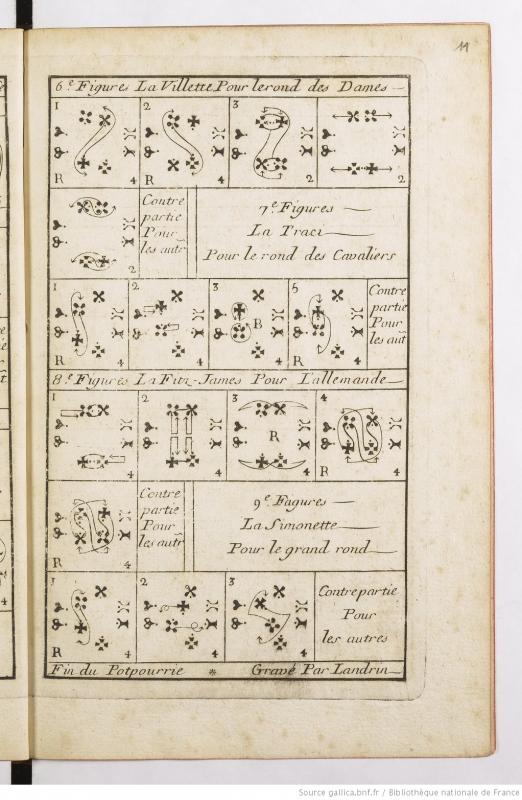 11
6.e Figures La Villette Pour le rond des Dames
1 2 3
R 4 R 4 2 2
Contre
partie
Pour
les autr
2
7.e Figures
La Traci
Pour le rond des Cavaliers
1 2 3 5
Contre
partie
Pour
les aut
B
R 4 4 4 R 4
8.e Figures La Fitz-James Pour L'allemande
1 2 3 4
R
4 4 4 R 4
Contre
partie
Pour
les autr
R 4
9.e Fugures
La Simonette
Pour le grand rond
1 2 3
R 4 4 4
Contre partie
Pour
les autres
Fin du Potpourrie * Gravé Par Landrin
Source gallica.bnf.fr / Bibliothèque nationale de France